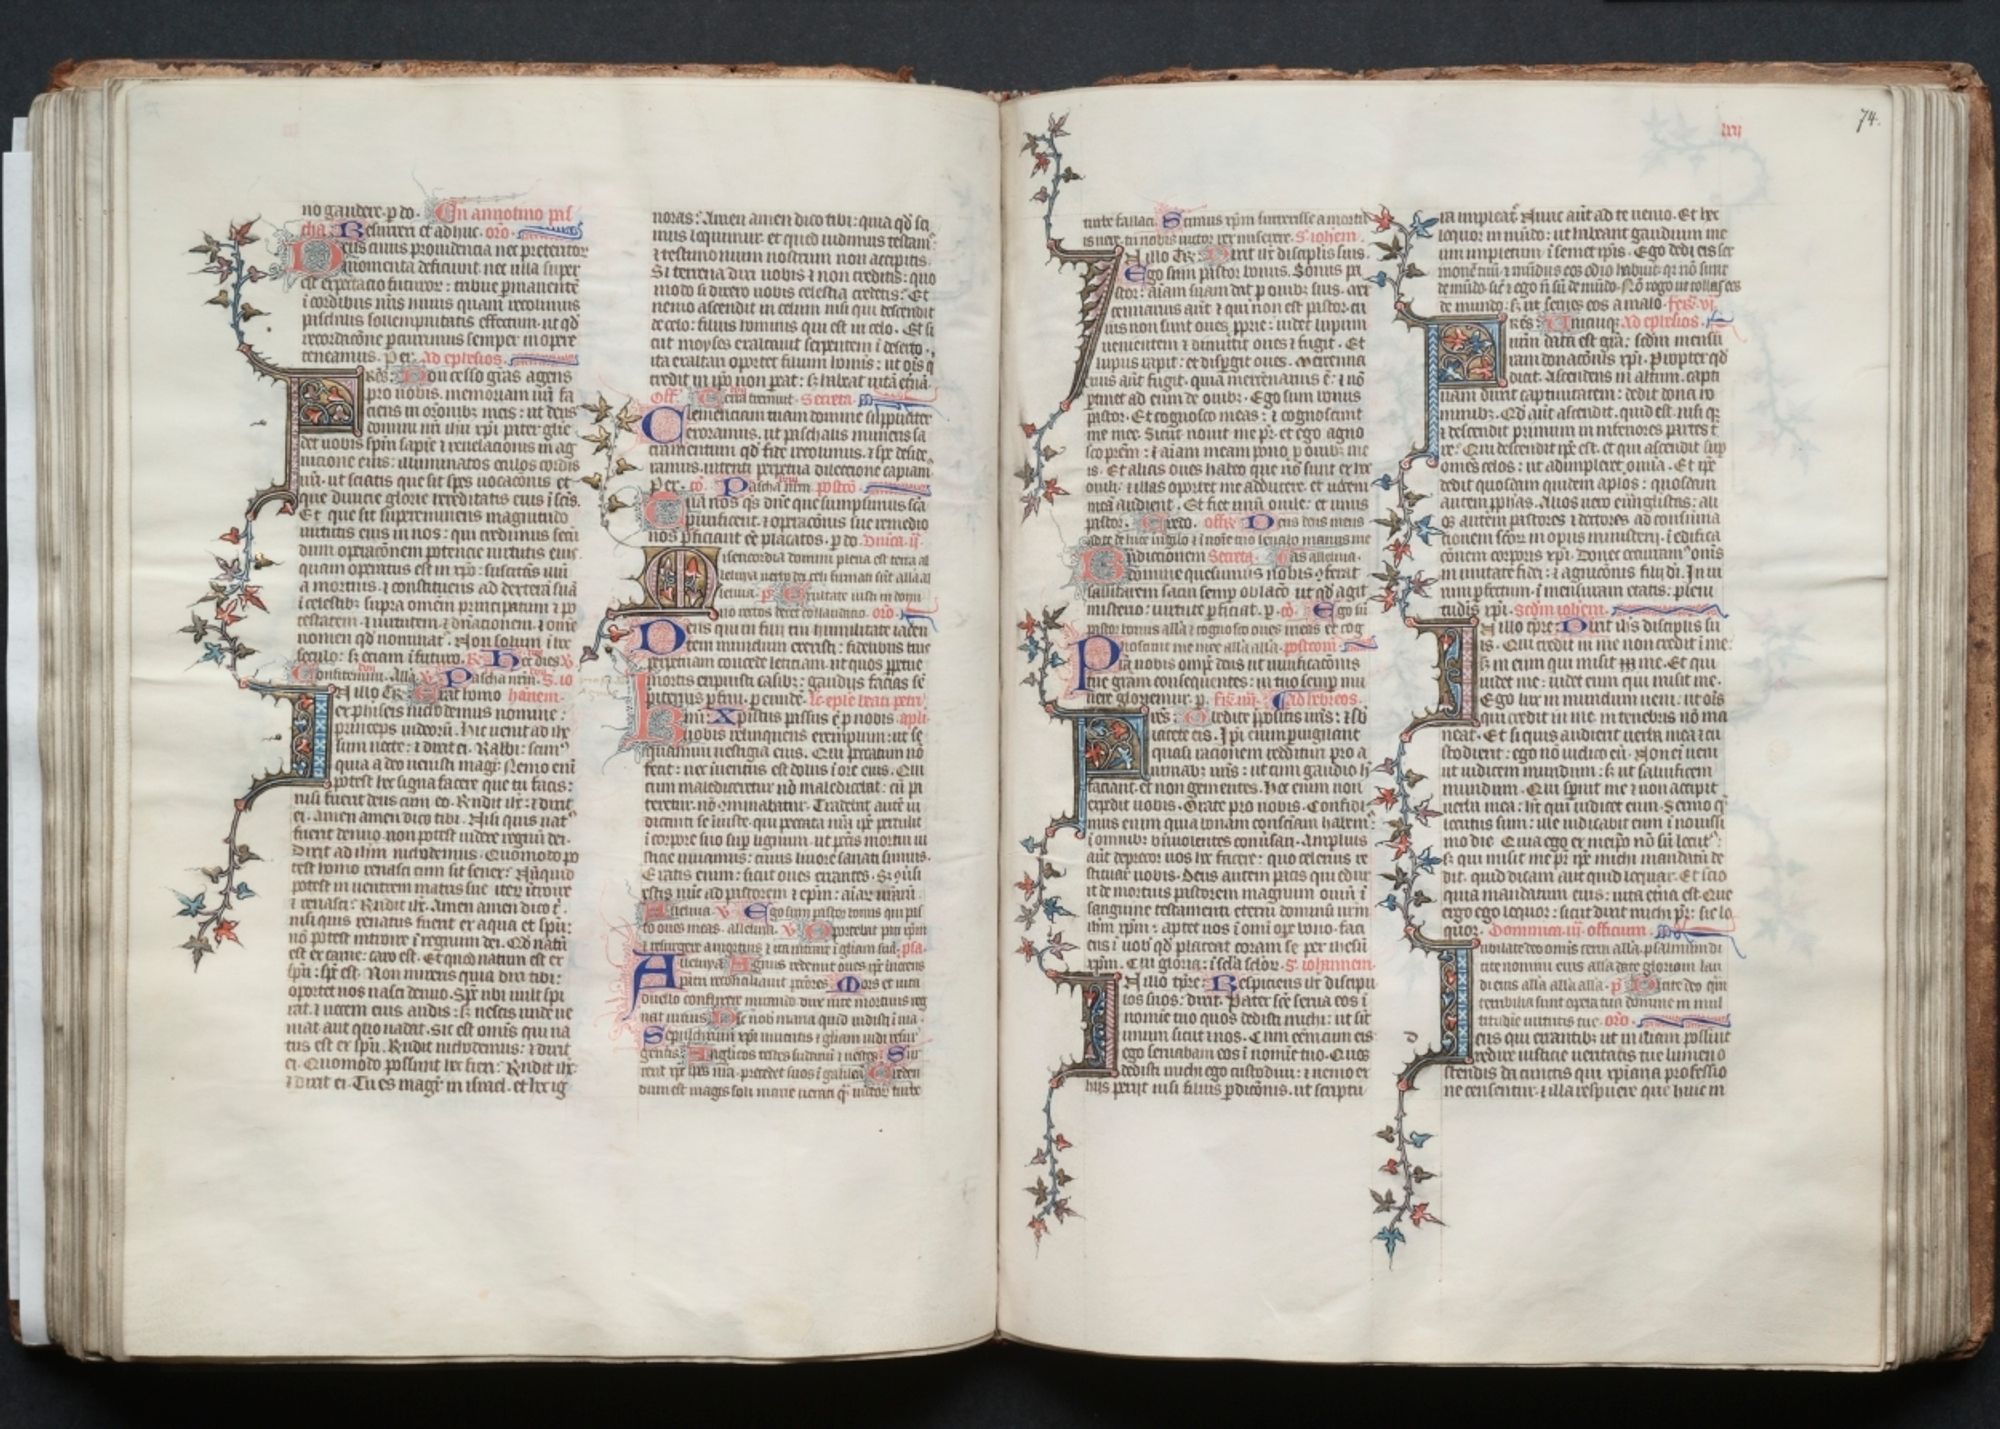 no gaudere. p do. En annotino pas
cha. Resurrexi et adhuc. oro.
Deus cuius providencia nec preteritor
momenta deficiunt. nec ulla super
est expectacio futuror: tribue permanente
i cordibus nris
paschalis sollempnitatis effectum. ut qd
recordacone percurrimus semper in opere
teneamus. Per. Ad ephesios.
Fres. Non cesso gras agens
pro nobis. memoriam uri fa
ciens in oronibz meis: ut deus
domini nri ihu xpi pater glie
det uobis spm sapie & reuelacionis in ag
nicione eius: illuminatos oculos cordis
uri. ut sciatis que sit spes uocaconis et
que diuicie glorie hereditatis eius i scis.
Et que sit supereminens magnitudo
uirtutis eius in nos: qui credimus secu
dum operaconem potencie uirtutis eius
quam operatus est in xpo: suscitas illu
a mortuis. & constituens ad dexteram sua
i celestibz supra omem principatum & po
testatem. & uirtutem & dnationem. & ome
nomen qd nominat. Non solum i hoc
seculo: sz eciam i futuro. R. Hec dies. V.
Confitemini. Alla. V. Pascha nrm. S. io
In illo tpr. Erat homo hannem.
ex phiseis nichodemus nomine:
princeps iudeoru. Hic uenit ad ihe
sum nocte: & dixit ei. Rabbi: scim
quia a deo uenisti magr. Nemo eni
potest hec signa facere que tu facis:
nisi fuerit deus cum eo. Rndit ihc: & dixit
ei. amen amen dico tibi. Nisi quis nat
fuerit denuo. non potest uidere regnu dei.
Dixit ad ihm nichodemus. Quomodo po
test homo renasci cum sit senex? Nuquid
potest in uentrem matris sue iter introire
& renasci? Rndit ihc. Amen amen dico t.
nisi quis renatus fuerit ex aqua et spu:
no potest introire i regnum dei. Qd natu
est ex carne: caro est. Et quod natum est ex
spu: sps est. Non mireris quia dixi tibi:
oportet uos nasci denuo. Sps ubi uult spi
rat. & uocem eius audis: sz nescis unde ue
niat aut quo uadat. Sic est omis qui na
tus est ex spu. Rndit nichodemus: & dixit
ei. Quomodo possunt hec fieri? Rndit ihc:
& dixit ei. Tu es magr in israel. et hec ig
noras? Amen amen dico tibi: quia qd sci
mus loquimur. et quod uidimus testam:
& testimonium nostrum non accipitis.
Si terrena dixi uobis & non creditis: quo
modo si dixero uobis celestia credetis? Et
nemo ascendit in celum nisi qui descendit
de celo: filius hominis qui est in celo. Et si
cut moyses exaltauit serpentem i deserto.
ita exaltari oportet filium homis: ut ois q
credit in ipo non peat: sz habeat uita etna.
Off. Terra tremuit. Secreta.
Clemenciam tuam domine suppliciter
exoramus. ut paschalis muneris sa
cramentum qd fide recolimus. & spe deside
ramus. intenti perpetua dilectione capiam
Per. co. Pascha nrm. postco.
Qua nos qs dne que sumpsimus sca
purificent. & operaconis sue remedio
nos pficiant ee placatos. p do. Dnica ii.
Misericordia domini plena est terra al
leluya uerbo dei celi firmati sut alla al
leluia. p. Exultate iusti in domi
no rectos decet collaudacio. oro.
Deus qui in filii tui humilitate iacen
tem mundum erexisti: fidelibus tuis
perpetuam concede leticiam. ut quos ppetue
mortis eripuisti casibz: gaudiis facias se
piternis pfrui. p eunde. Lc eple beati petri
Kmi. Xpistus passus e p nobis. apli.
uobis relinquens exemplum: ut se
quamini uestigia eius. Qui peccatum no
fecit: nec inuentus est dolus i ore eius. Qui
cum malediceretur no maledicebat: cu pa
teretur. no cominabatur. Tradebat autem iu
dicanti se iuste. qui peccata nra ipe pertulit
i corpore suo sup lignum. ut pctis mortui iu
sticie uiuamus: cuius liuore sanati sumus.
Eratis enim: sicut oues errantes. Sz quisi
estis nuc ad pastorem & epm: aiar urarum.
Alleluia. V. Ego sum pastor bonus qui pas
co oues meas. alleluia. V. Oportebat pati xpm
& resurgere a mortuis & ita intrare i gliam sua. psa.
Alleluya. Agnus redemit oues xpc inocens
Patri reconciliauit pctores. Mors et uita
duello conflixere mirando dux uite mortuus reg
nat uiuus. Dic nob maria quid uidisti i uia.
Sepulchrum xpi uiuentis & gliam uidi resur
gentis. Anglicos testes sudariu & uestes. Sur
rexit xpc spes mea precedet suos i galilea. Creden
dum est magis soli marie ueraci q iudeor turbe
turbe fallaci. Scimus xpm surrexisse a mortu
is uere. tu nobis uictor rex miserere. S. iohem.
In illo tpr. Dixit ihc discipulis suis.
Ego sum pastor bonus. Bonus pa
stor: aiam suam dat p ouibz suis. mer
cennarius aut & qui non est pastor. cu
ius non sunt oues pprie: uidet lupum
uenientem & dimittit oues & fugit. Et
lupus rapit: et dispergit oues. Mercenna
rius aut fugit. quia mercenarius e: & no
ptinet ad eum de ouibz. Ego sum bonus
pastor. Et cognosco meas: & cognoscunt
me mee. Sicut nouit me pr: et ego agno
sco prem: & aiam meam pono p ouibz me
is. Et alias oues habeo que no sunt ex hoc
ouili: & illas oportet me adducere. et uocem
mea audient. Et fiet unu ouile: et unus
pastor. Credo. offr. Deus deus meus
ad te de luce uigilo & i noie tuo leuabo manus me
Bndictionem Secreta. as alleluia.
domine quesumus nobis oferat
salutarem sacra semp oblaco. ut qd agit
misterio: uirtute pficiat. p. co. Ego su
pastor bonus alla & cognosco oues meas et cog
Presta nobis omps deus ut uiuificaconis
tue gram consequentes: in tuo semp mu
nere gloriemur. p. fer. iiii. Ad hebreos.
Fres: Obedite ppositis uris: & sb
iacete eis. Ipi enim puigilant
quasi racionem reddituri pro a
nimabz uris: ut cum gaudio h
faciant. et non gementes. Hoc enim non
expedit uobis. Orate pro nobis. Confidi
mus enim quia bonam consciam habem
i omnibz bn uolentes conuersari. Amplius
aut deprecor uos hoc facere: quo celerius re
stituar uobis. Deus autem pacis qui edux
it de mortuis pastorem magnum ouiu i
sanguine testamenti eterni dominu nrm
ihm xpm: aptet uos i omi ope bono. faci
ens i uob qd placeat coram se per ihesu
xpm. Cui gloria: i scla sclor. S. iohannem.
In illo tpre: Respiciens ihc discipu
los suos: dixit. Pater sce serua eos i
nomine tuo quos dedisti michi: ut sit
unum sicut & nos. Cum eem cum eis:
ego seruabam eos i nomine tuo. Quos
dedisti michi ego custodiui: & nemo ex
hiis periit nisi filius pdiconis. ut scriptu
lxxii
74.
ra impleat. Nunc aut ad te uenio. Et hec
loquor in mundo: ut habeant gaudium me
um impletum i semet ipis. Ego dedi eis ser
mone tuu & mundus eos odio habuit. qr no sunt
de mudo. sic & ego n su de mudo. No rogo ut tollas eos
de mundo: sz ut serues eos a malo. fer. vi.
Fres: Unicuiq Ad ephesios.
nrm data est gra: scdm mensu
ram donaconis xpi. Propter qd
dicit. Ascendens in altum. capti
uam duxit captiuitatem: dedit dona ho
minibz. Qd aut ascendit. quid est. nisi qz
& descendit primum in inferiores partes t
re? Qui descendit ipe est. et qui ascendit sup
omes celos: ut adimpleret omia. Et ipe
dedit quosdam quidem aplos: quosdam
autem pphas. Alios uero euuglistas: ali
os autem pastores & doctores ad consuma
cionem scorz in opus ministerij. i edifica
conem corporis xpi. Donec occuram omes
in unitate fidei: & agniconis filij di. In ui
rum pfectum: i mensuram etatis: pleni
tudis xpi. Scdm iohem.
In illo tpre: Dixit ihs disciplis su
is. Qui credit in me non credit i me:
sz in eum qui misit me. Et qui
uidet me: uidet eum qui misit me.
Ego lux in mundum ueni. ut ois
qui credit in me in tenebris no ma
neat. Et si quis audierit uerba mea & cu
stodierit: ego no iudico eu. Non eni ueni
ut iudicem mundum: sz ut saluificem
mundum. Qui spnit me & non accipit
uerba mea: hz qui iudicet eum. Sermo q
locutus sum: ille iudicabit eum i nouissi
mo die. Quia ego ex meipo no su locut:
sz qui misit me pr ipe michi mandatu de
dit. quid dicam aut quid loquar. Et scio
quia mandatum eius: uita etna est. Que
ergo ego loquor: sicut dixit michi pr: sic lo
quor. Dominica iii. officium.
Iubilate deo omis terra alla. psalmum di
cite nomini eius alla date gloriam lau
di eius alla alla alla. p. Dicite deo qm
terribilia sunt opera tua domine in mul
titudie uirtutis tue. oro.
Deus qui errantibz ut in uiam possint
redire iusticie ueritatis tue lumen o
stendis da cunctis qui xpiana professio
ne censentur. & illa respuere que huic in